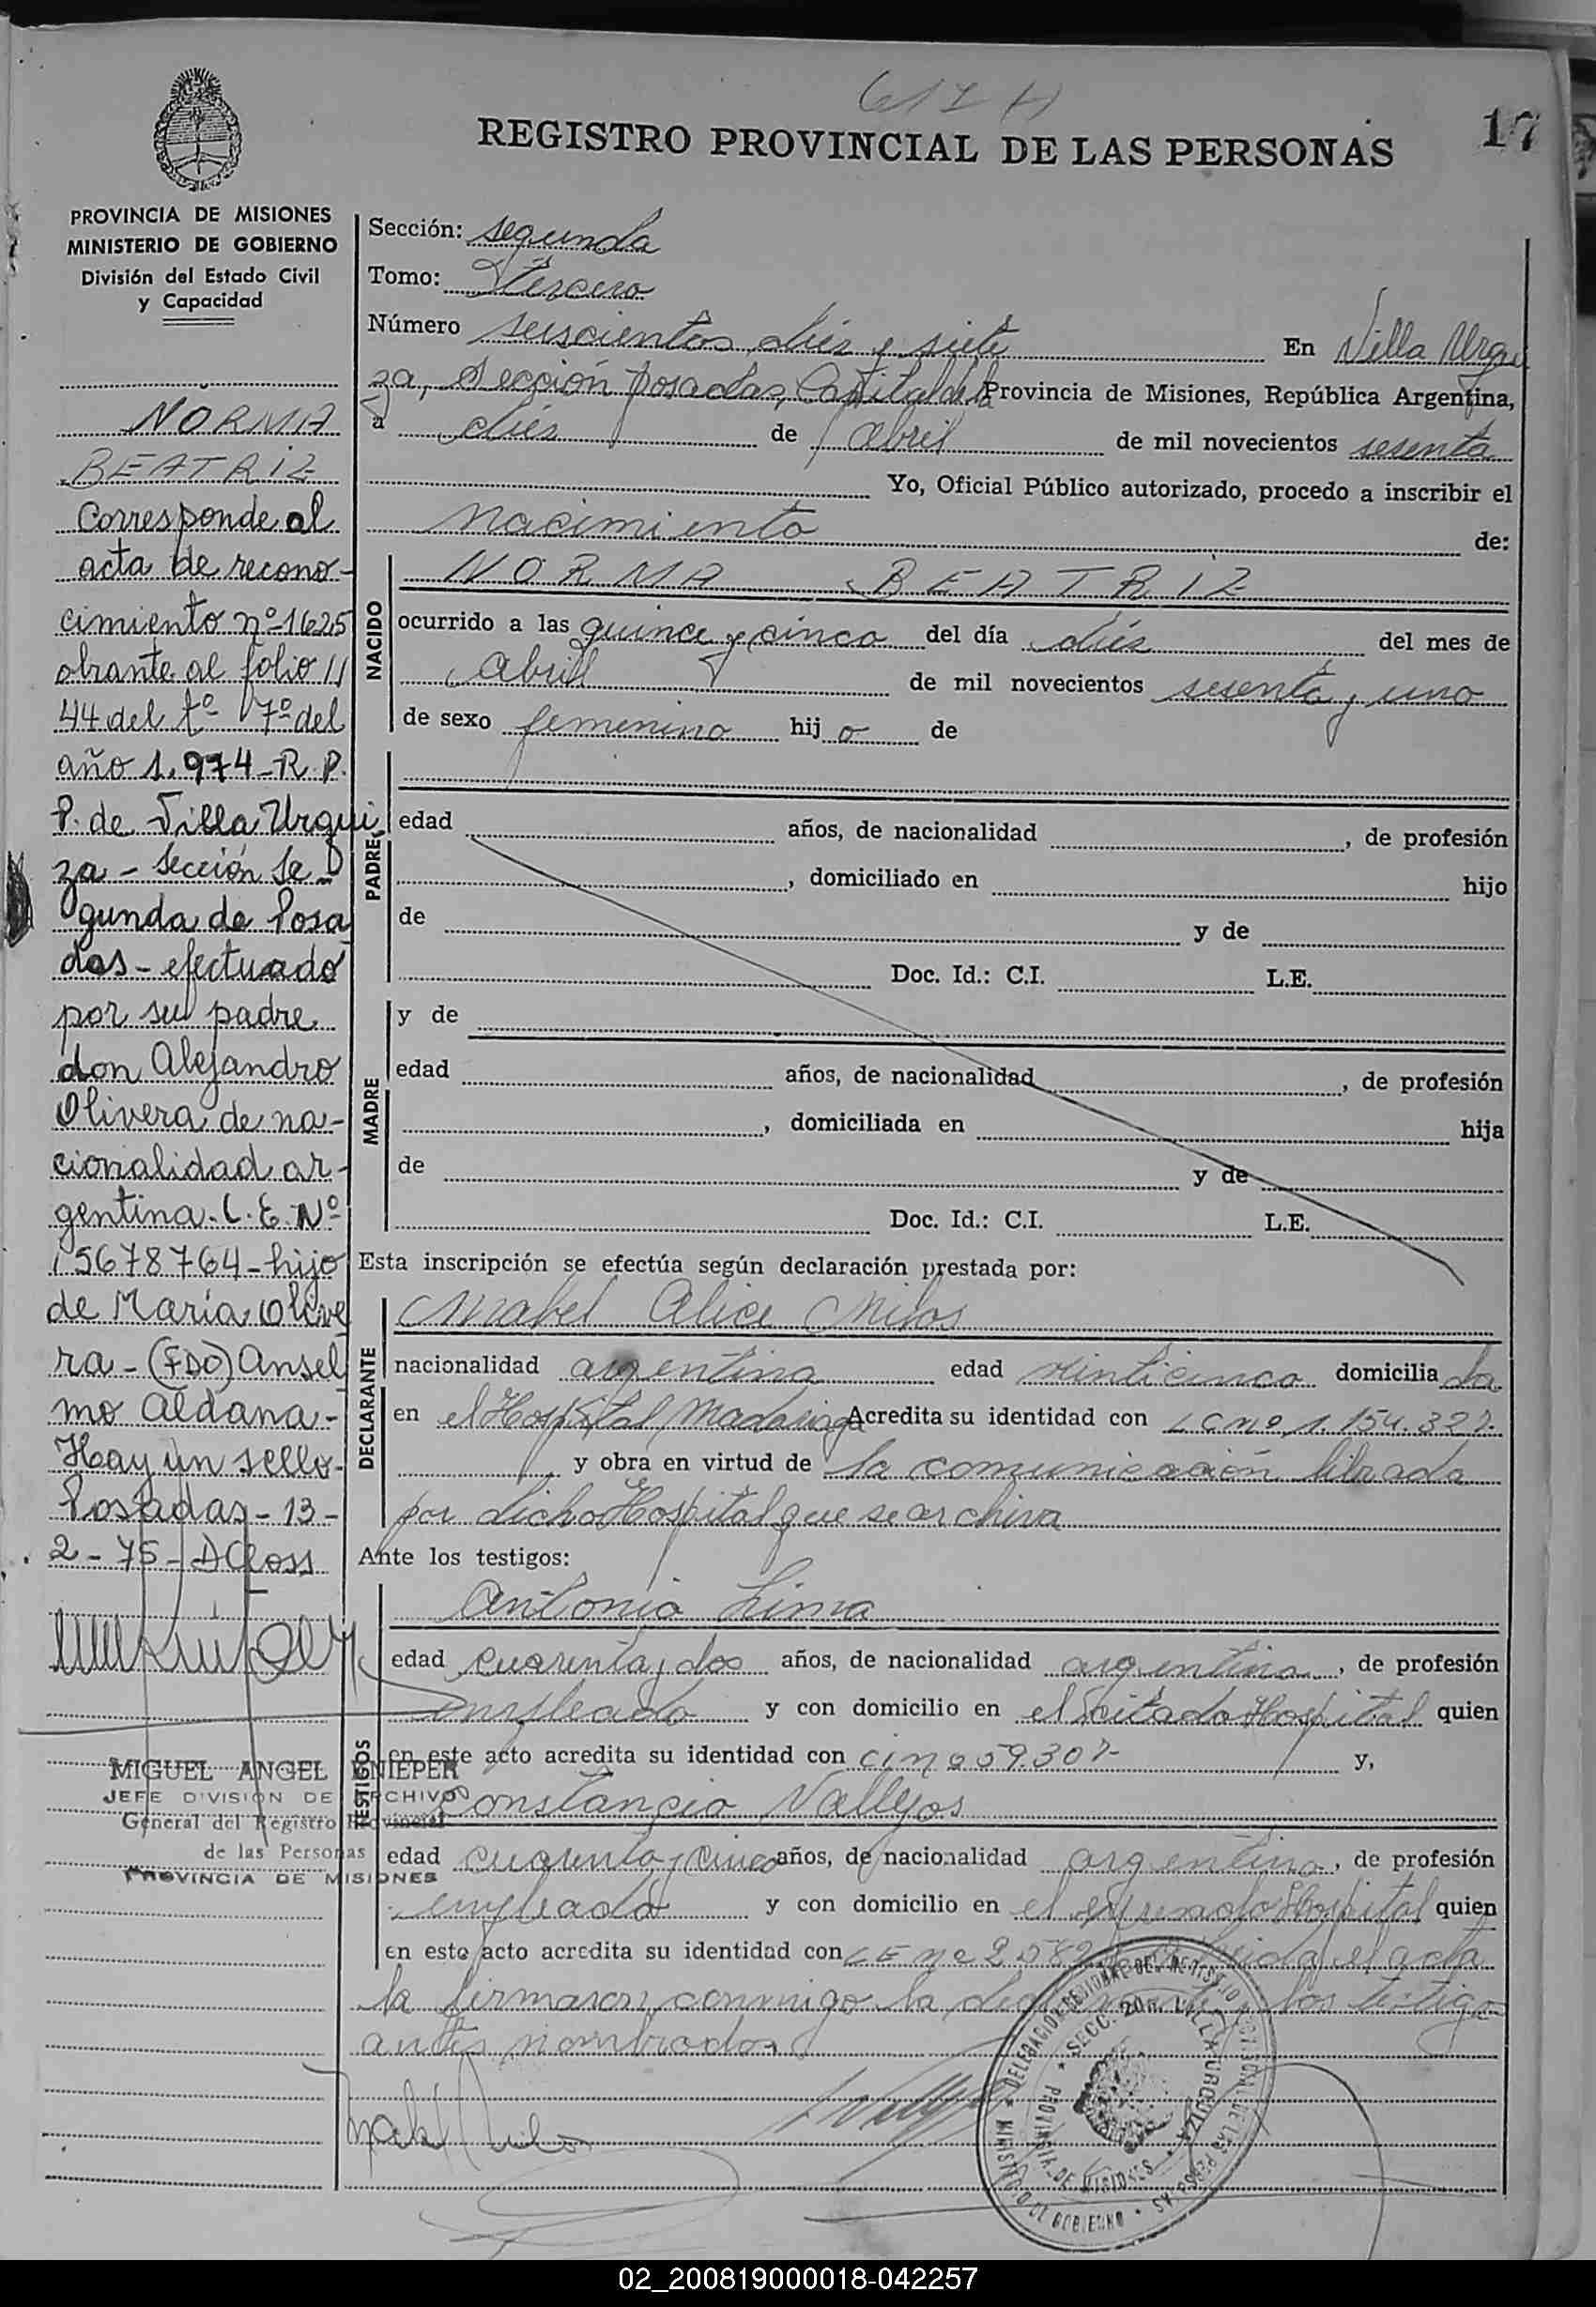 617 H
17
REGISTRO PROVINCIAL DE LAS PERSONAS
PROVINCIA DE MISIONES
MINISTERIO DE GOBIERNO
División del Estado Civil
y Capacidad
NORMA
BEATRIZ
Corresponde al
acta de recono-
cimiento nº 1625
obrante al folio 11
44 del tº 7º del
año 1.974-R.P.
P. de Villa Urqui
za - Sección Se-
gunda de Posa
das - efectuado
por su padre
don Alejandro
Olivera de na-
cionalidad ar-
gentina. L.E. Nº
15678764-hijo
de María Olive
ra - (FDO) Ansel
mo Aldana -
Hay un sello -
Posadas - 13 -
2 - 75 - DCloss
MIGUEL ANGEL KNIEPER
JEFE DIVISION DE ARCHIVO
General del Registro Provincial
de las Personas
PROVINCIA DE MISIONES
Sección: segunda
Tomo: Tercero
Número seiscientos diés y siete En Villa Urqui
za, Sección Posadas, Capital de la Provincia de Misiones, República Argentina,
a diés de abril de mil novecientos sesenta
Yo, Oficial Público autorizado, procedo a inscribir el
nacimiento de:
NACIDO
NORMA BEATRIZ
ocurrido a las quince y cinco del día diés del mes de
Abril de mil novecientos sesenta y uno
de sexo femenino hij a de
PADRE
edad años, de nacionalidad , de profesión
, domiciliado en hijo
de y de
Doc. Id.: C.I. L.E.
MADRE
y de
edad años, de nacionalidad , de profesión
, domiciliada en hija
de y de
Doc. Id.: C.I. L.E.
Esta inscripción se efectúa según declaración prestada por:
DECLARANTE
Mabel Alice Milos
nacionalidad argentina edad veinticinco domicilia da
en el Hospital Madariaga Acredita su identidad con LC nº 1.154.327-
y obra en virtud de la comunicación librada
por dicho Hospital que se archiva
Ante los testigos:
TESTIGOS
Antonio Lima
edad cuarenta y dos años, de nacionalidad argentina, de profesión
empleado y con domicilio en el citado Hospital quien
en este acto acredita su identidad con CI nº 59.307- y,
Constancio Vallejos
edad cuarenta y cinco años, de nacionalidad argentina, de profesión
empleado y con domicilio en el expresado Hospital quien
en este acto acredita su identidad con LE nº 2.582 Leida el acta
la firmaron conmigo la declarante y los testigos
antes nombrados
Mabel Milos
DELEGACION REGIONAL DEL REGISTRO PROVINCIAL DE LAS PERSONAS
MINISTERIO DE GOBIERNO
SECC. 2DA. VILLA URQUIZA
PROVINCIA DE MISIONES
02_200819000018-042257